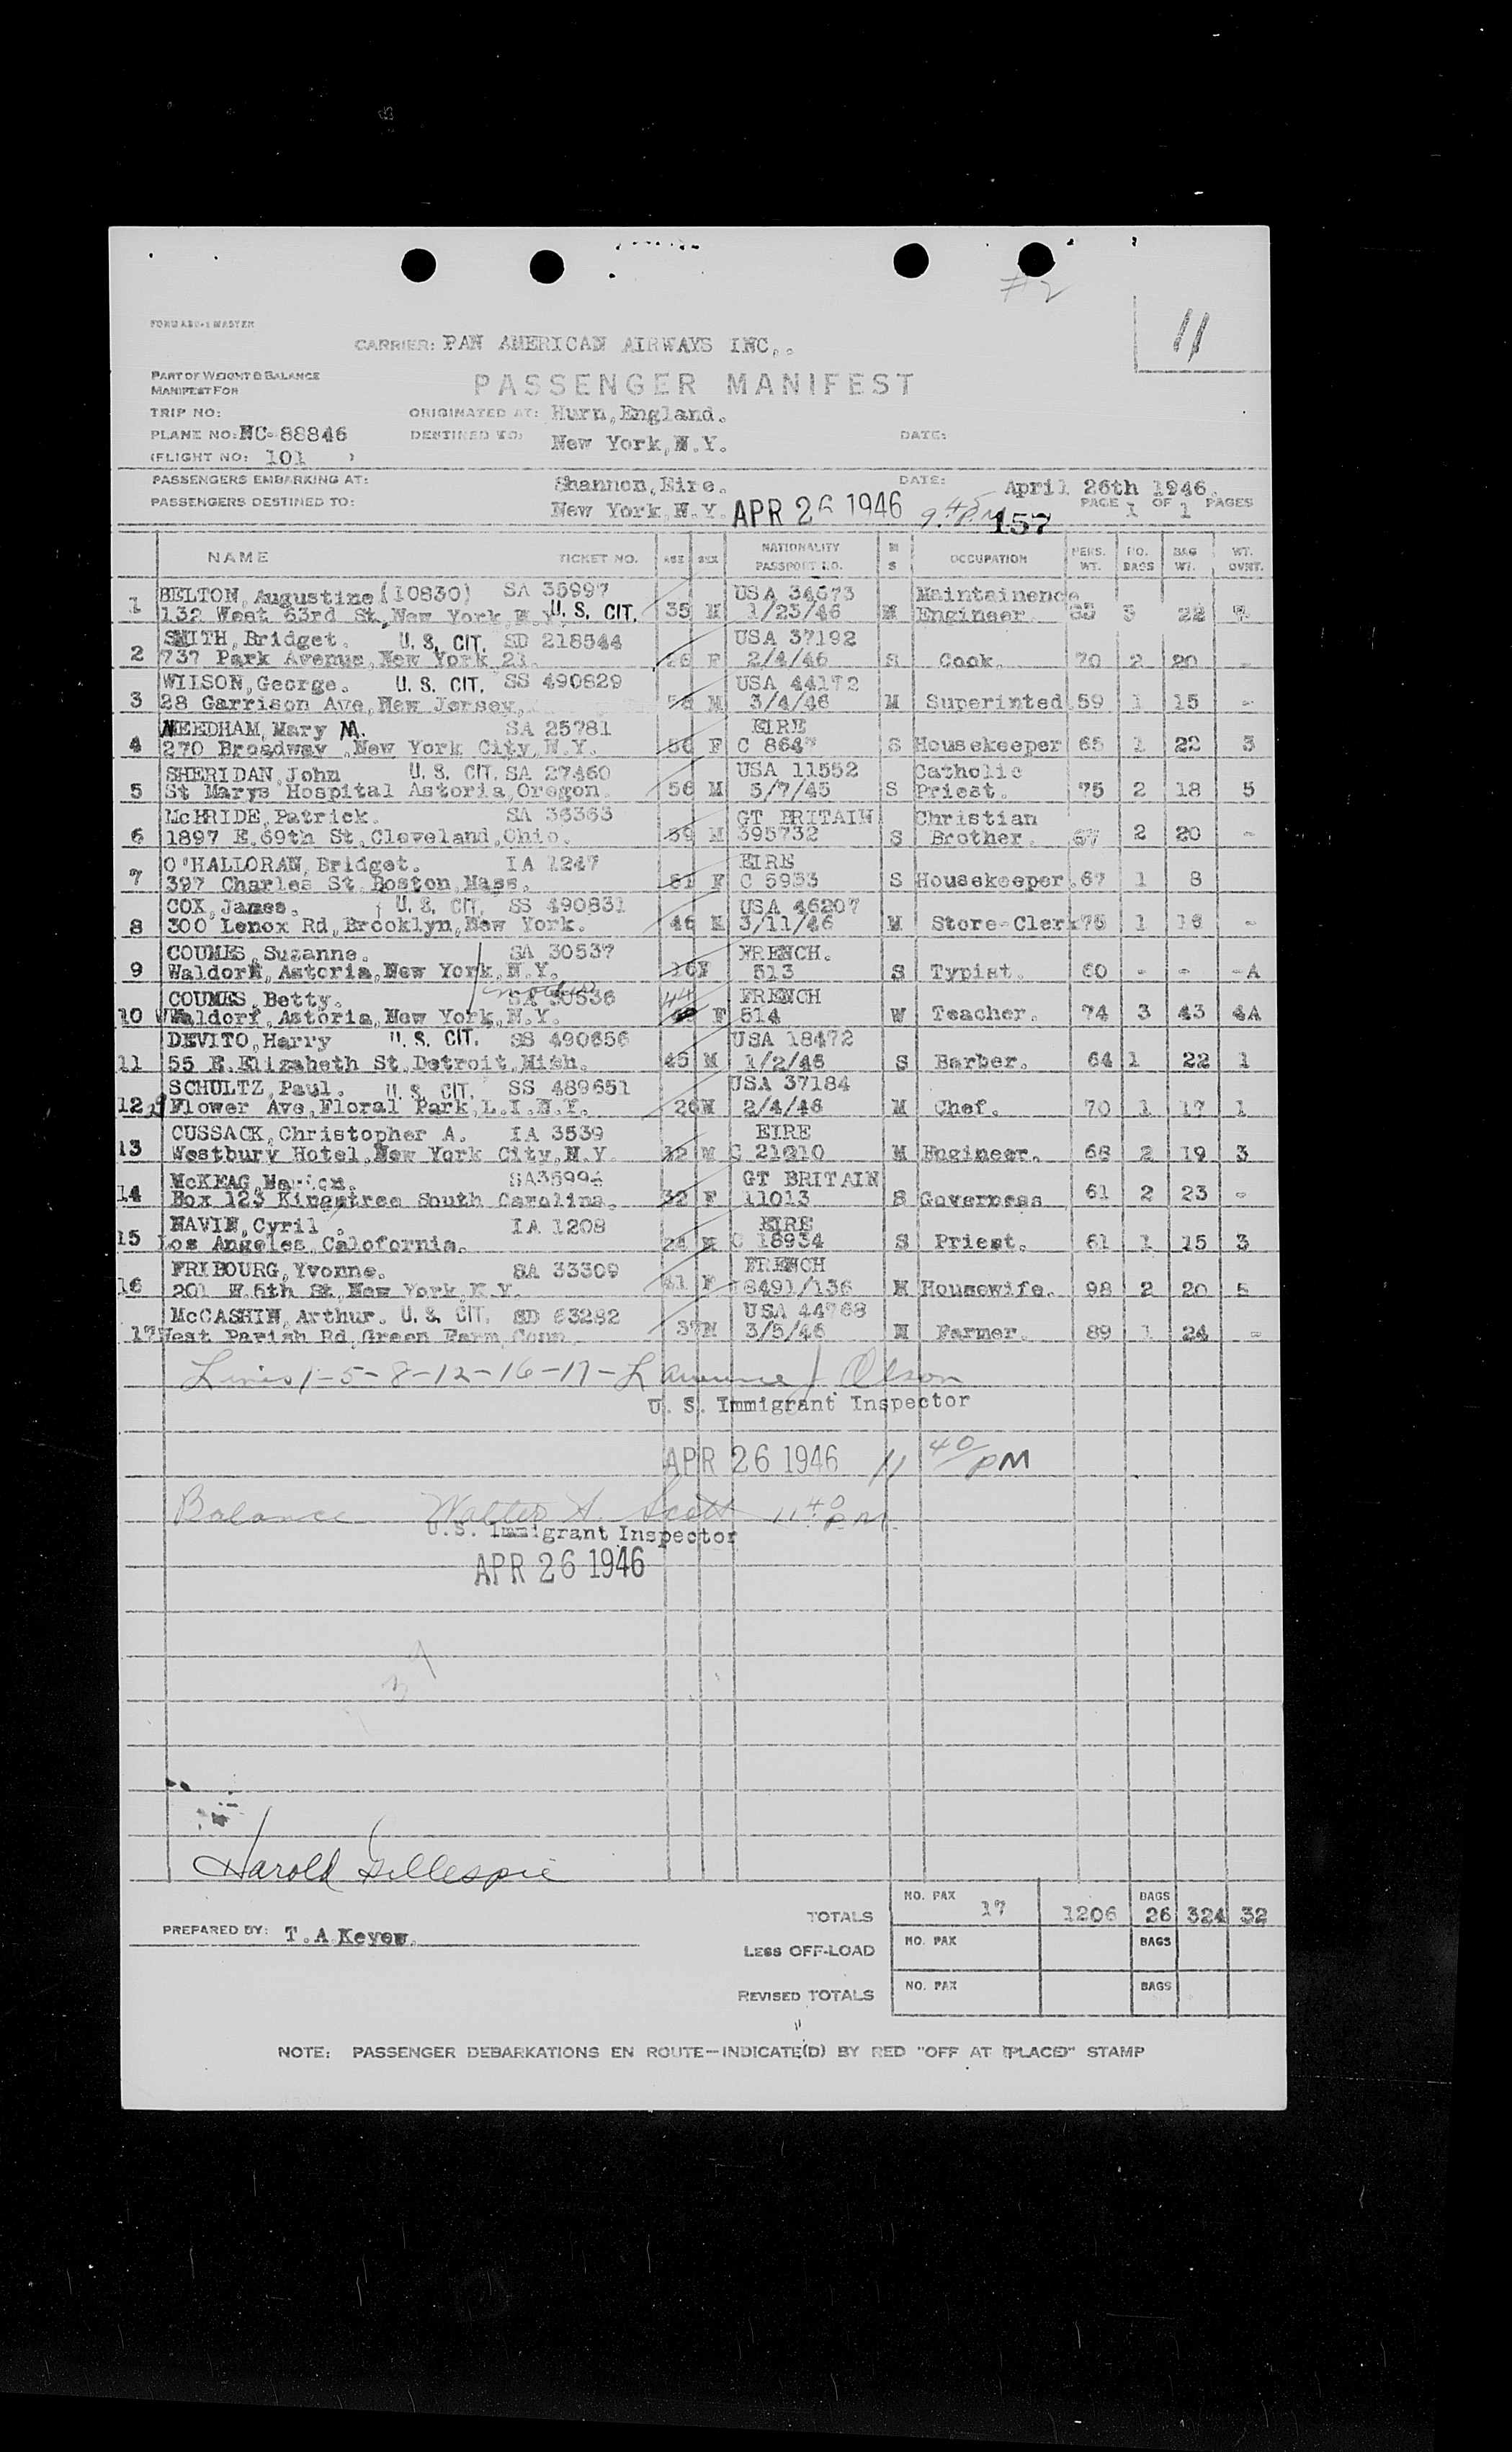 #2
11
CARRIER: PAN AMERICAN AIRWAYS INC,.
PART OF WEIGHT & BALANCE
MANIFEST FOR
PASSENGER MANIFEST
TRIP NO: ORIGINATED AT: Hurn, England.
PLANE NO: NC-88846 DESTINED TO: New York, N.Y. DATE:
(FLIGHT NO: 101 )
PASSENGERS EMBARKING AT: Shannon, Eire. DATE: April 26th 1946.
PASSENGERS DESTINED TO: New York, N.Y. APR 26 1946 9.45 P.M 157 PAGE 1 OF 1 PAGES
NAME TICKET NO. AGE SEX NATIONALITY PASSPORT NO. M S OCCUPATION PERS. WT. NO. BAGS BAG WT. WT. OVNT.
BELTON, Augustine (10830) SA 35997 USA 34673 Maintainence
1 132 West 63rd St, New York, N.Y. U. S. CIT. 35 M 1/23/46 M Engineer. 3 22
SMITH, Bridget. U. S. CIT. SD 218544 USA 37192
2 737 Park Avenue, New York 21. 26 F 2/4/46 S Cook. 70 2 20 -
WIISON, George. U. S. CIT. SS 490829 USA 44172
3 28 Garrison Ave, New Jersey, M 3/4/46 M Superinted. 59 1 15 -
NEEDHAM, Mary M. SA 25781 EIRE
4 270 Broadway , New York City, N.Y. 56 F C 8647 S Housekeeper 65 1 22 3
SHERIDAN, John U. S. CIT. SA 27460 USA 11552 Catholic
5 St Marys Hospital Astoria, Oregon. 56 M 5/7/45 S Priest. 75 2 18 5
McBRIDE, Patrick. SA 36363 GT BRITAIN Christian
6 1897 E. 69th St, Cleveland, Ohio. 59 M 395732 S Brother. 67 2 20 -
O'HALLORAN, Bridget. IA 1247 EIRE
7 397 Charles St Boston, Mass. 51 F C 5933 S Housekeeper. 67 1 8
COX, James. U. S. CIT. SS 490831 USA 46207
8 300 Lenox Rd, Brooklyn, New York. 46 M 3/11/46 M Store-Clerk 75 1 16 -
COUMES, Suzanne. SA 30537 FRENCH.
9 Waldorf, Astoria, New York, N.Y. 16 F 513 S Typist. 60 - - -A
COUMES, Betty. mother SA 30536 44 FRENCH
10 Waldorf, Astoria, New York, N.Y. F 514 W Teacher. 74 3 43 4A
DEVITO, Harry U. S. CIT. SS 490656 USA 18472
11 55 E. Elizabeth St, Detroit, Mich. 45 M 1/2/46 S Barber. 64 1 22 1
SCHULTZ, Paul. U. S. CIT. SS 489651 USA 37184
12 Flower Ave, Floral Park, L.I. N.Y. 26 M 2/4/46 M Chef. 70 1 17 1
CUSSACK, Christopher A. IA 3539 EIRE
13 Westbury Hotel, New York City, N.Y. 32 M C 21210 M Engineer. 68 2 19 3
McKEAG, Marion. SA3599 GT BRITAIN
14 Box 123 Kingstree South Carolina. 32 F 11013 S Governess 61 2 23 -
NAVIN, Cyril . IA 1208 EIRE
15 Los Angeles, Calofornia. M C 18934 S Priest. 61 1 15 3
FRIBOURG, Yvonne. SA 33309 FRENCH
16 201 W. 5th St, New York, N.Y. 41 F 8491/136 M Housewife. 98 2 20 5
McCASHIN, Arthur. U. S. CIT. SD 63282 USA 44768
17 West Parish Rd, Green Farm, Conn. 37 M 3/5/46 M Farmer. 89 1 24 -
Lines 1-5-8-12-16-17- Lawrence J. Olson
U. S. Immigrant Inspector
APR 26 1946 11 40 PM
Balance Walter A. Scott 11 40 P.M.
U.S. Immigrant Inspector
APR 26 1946
Harold Gillespie
TOTALS NO. PAX 17 1206 BAGS 26 324 32
PREPARED BY: T.A Keyew.
LESS OFF-LOAD NO. PAX BAGS
REVISED TOTALS NO. PAX BAGS
NOTE: PASSENGER DEBARKATIONS EN ROUTE—INDICATE(D) BY RED "OFF AT (PLACE)" STAMP